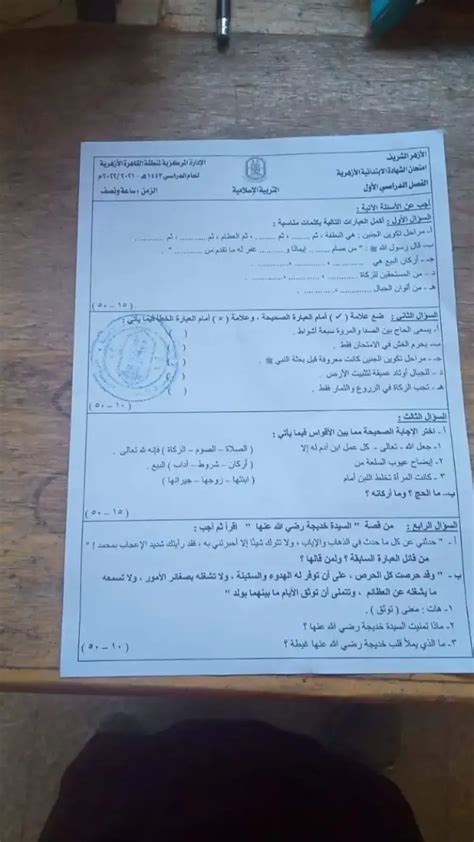 الأزهر الشريف
امتحان الشهادة الابتدائية الأزهرية
الفصل الدراسي الأول
التربية الإسلامية
الإدارة المركزية لمنطقة القاهرة الأزهرية
لعام الدراسي ١٤٤٣هـ - ٢٠٢١/٢٠٢٢م
الزمن : ساعة ونصف
أجب عن الأسئلة الآتية :
السؤال الأول : أكمل العبارات التالية بكلمات مناسبة :
أ- مراحل تكوين الجنين : هي النطفة ، ثم ........ ، ثم ........ ، ثم العظام ، ثم ........ ، ثم ........
ب- قال رسول الله ﷺ : " من صام ........ إيمانًا و ........ غفر له ما تقدم من ........ " .
جـ - أركان البيع هي ........ ، ........ ، ........
د - من المستحقين للزكاة ........ ، ........ ، ........
هـ - من ألوان الجبال ........ ، ........ ، ........
( ١٥ – ٥٠ )
السؤال الثاني : ضع علامة ( ✓ ) أمام العبارة الصحيحة ، وعلامة ( × ) أمام العبارة الخطأ فيما يأتي :
أ- يسعى الحاج بين الصفا والمروة سبعة أشواط . ( )
ب- يحرم الغش في الامتحان فقط . ( )
جـ - مراحل تكوين الجنين كانت معروفة قبل بعثة النبي ﷺ . ( )
د - للجبال أوتاد عميقة لتثبيت الأرض . ( )
هـ - تجب الزكاة في الزروع والثمار فقط . ( )
( ١٠ – ٥٠ )
السؤال الثالث :
أ - اختر الإجابة الصحيحة مما بين الأقواس فيما يأتي :
١- جعل الله - تعالى - كل عمل ابن آدم له إلا ( الصلاة – الصوم – الزكاة ) فإنه لله تعالى .
٢- إيضاح عيوب السلعة من ( أركان – شروط – آداب ) البيع .
٣- كانت المرأة تخلط اللبن أمام ( ابنتها – زوجها – جيرانها )
ب- ما الحج ؟ وما أركانه ؟
( ١٥ – ٥٠ )
السؤال الرابع : من قصة " السيدة خديجة رضي الله عنها " اقرأ ثم أجب :
أ - " حدثني عن كل ما حدث في الذهاب والإياب ، ولا تترك شيئًا إلا أخبرتني به ، فقد رأيتك شديد الإعجاب بمحمد ! "
من قائل العبارة السابقة ؟ ولمن قالها ؟
ب - " وقد حرصت كل الحرص ، على أن توفر له الهدوء والسكينة ، ولا تشغله بصغائر الأمور ، ولا تسمعه
ما يشغله عن العظائم ، وتتمنى أن توثق الأيام ما بينهما بولد "
١- هات : معنى ( توثق ) .
٢- ماذا تمنيت السيدة خديجة رضي الله عنها ؟
٣- ما الذي يملأ قلب خديجة رضي الله عنها غبطة ؟
( ١٠ – ٥٠ )